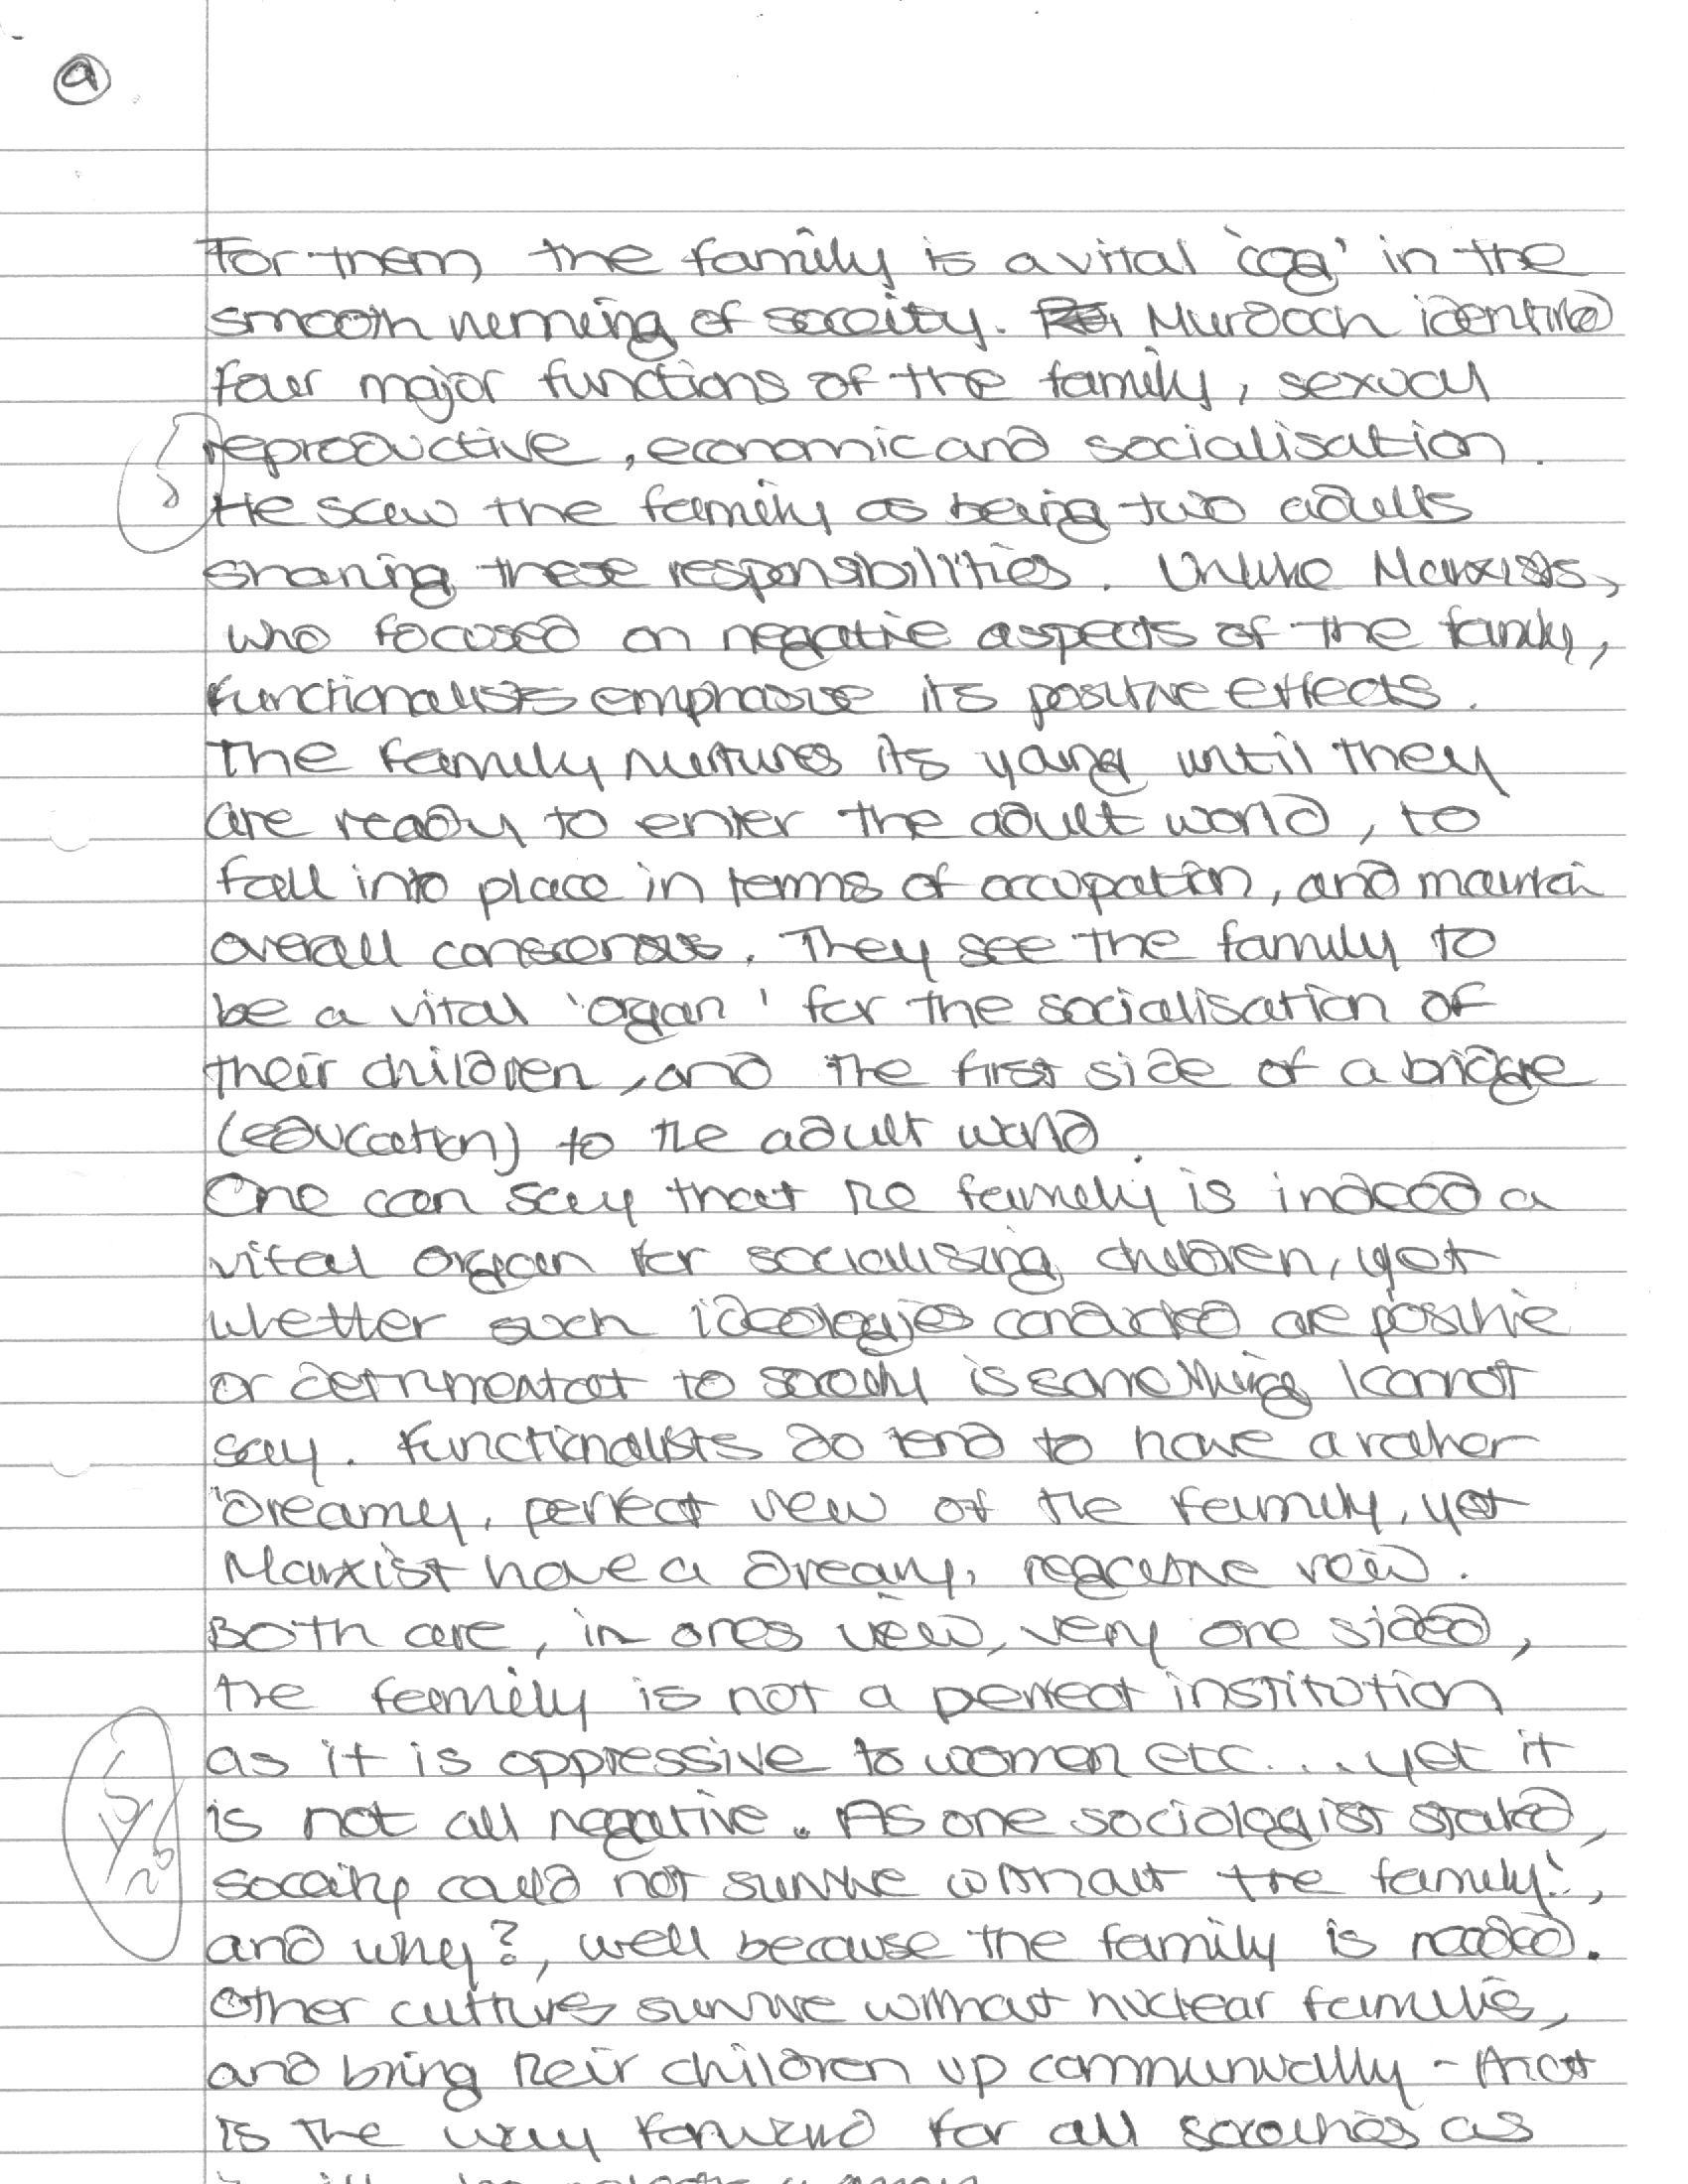 a
For them the family is a vital 'cog' in the
smooth running of soceity. Murdoch identified
four major functions of the family, sexual
reproductive, economic and socialisation.
He saw the family as being two adults
sharing these responsibilities. Unlike Marxists,
who focused on negative aspects of the family,
functionalists emphasise its positive effects.
The family nurtures its young until they
are ready to enter the adult world, to
fall into place in terms of occupation, and maintain
overall consensus. They see the family to
be a vital 'organ' for the socialisation of
their children, and the first side of a bridge
(education) to the adult world.
One can say that the family is indeed a
vital organ for socialising children, yet
whether such ideologies conducted are positive
or detrimental to society is something I cannot
say. Functionalists do tend to have a rather
'dreamy, perfect view of the family, yet
Marxist have a dreary, negative veiw.
Both are, in ones veiw, very one sided,
the family is not a perfect institution
as it is oppressive to women etc... yet it
is not all negative. As one sociologist stated,
soceity could not survive without the family!',
and why?, well because the family is needed.
Other cultures survive without nuclear families,
and bring their children up communually - that
is the way forward for all soceities as